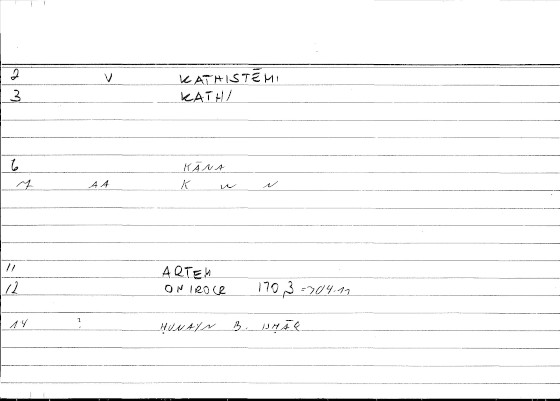 2 V KATHISTĒMI
3 KATHI
6 KĀNA
7 AA K W N
11 ARTEM
12 ONIROCR 170,3
14 ? ḤUNAYN B. ISḤĀQ